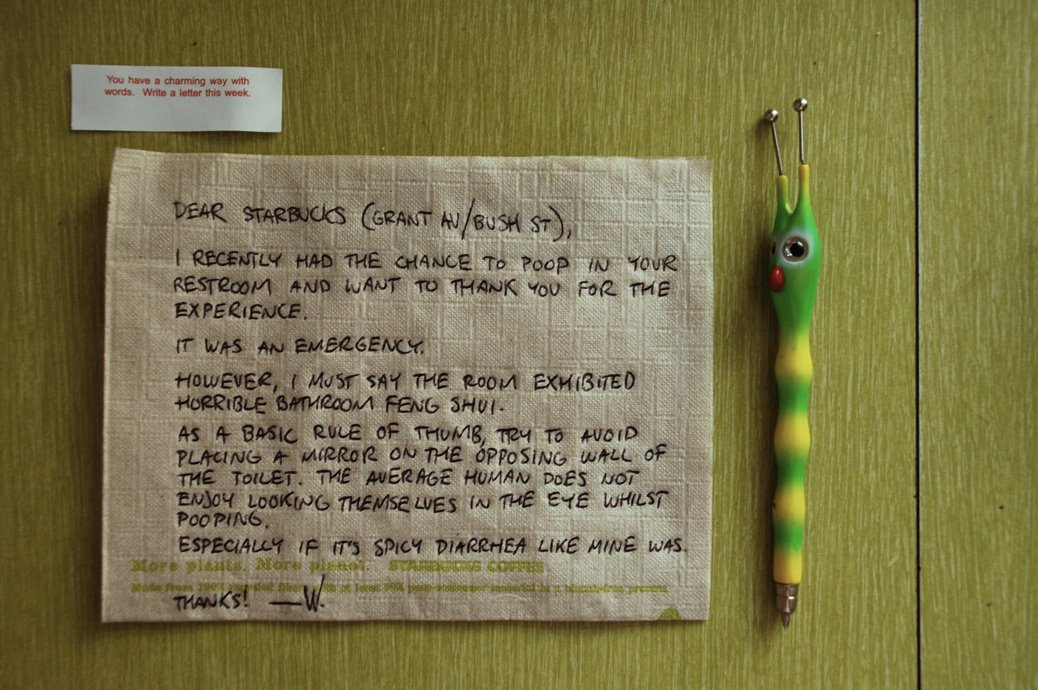 You have a charming way with
words. Write a letter this week.
DEAR STARBUCKS (GRANT AV/BUSH ST),
I RECENTLY HAD THE CHANCE TO POOP IN YOUR
RESTROOM AND WANT TO THANK YOU FOR THE
EXPERIENCE.
IT WAS AN EMERGENCY.
HOWEVER, I MUST SAY THE ROOM EXHIBITED
HORRIBLE BATHROOM FENG SHUI.
AS A BASIC RULE OF THUMB, TRY TO AVOID
PLACING A MIRROR ON THE OPPOSING WALL OF
THE TOILET. THE AVERAGE HUMAN DOES NOT
ENJOY LOOKING THEMSELVES IN THE EYE WHILST
POOPING.
ESPECIALLY IF IT'S SPICY DIARRHEA LIKE MINE WAS.
More plants. More planet. STARBUCKS COFFEE
Made from 100% recycled
THANKS! —W.